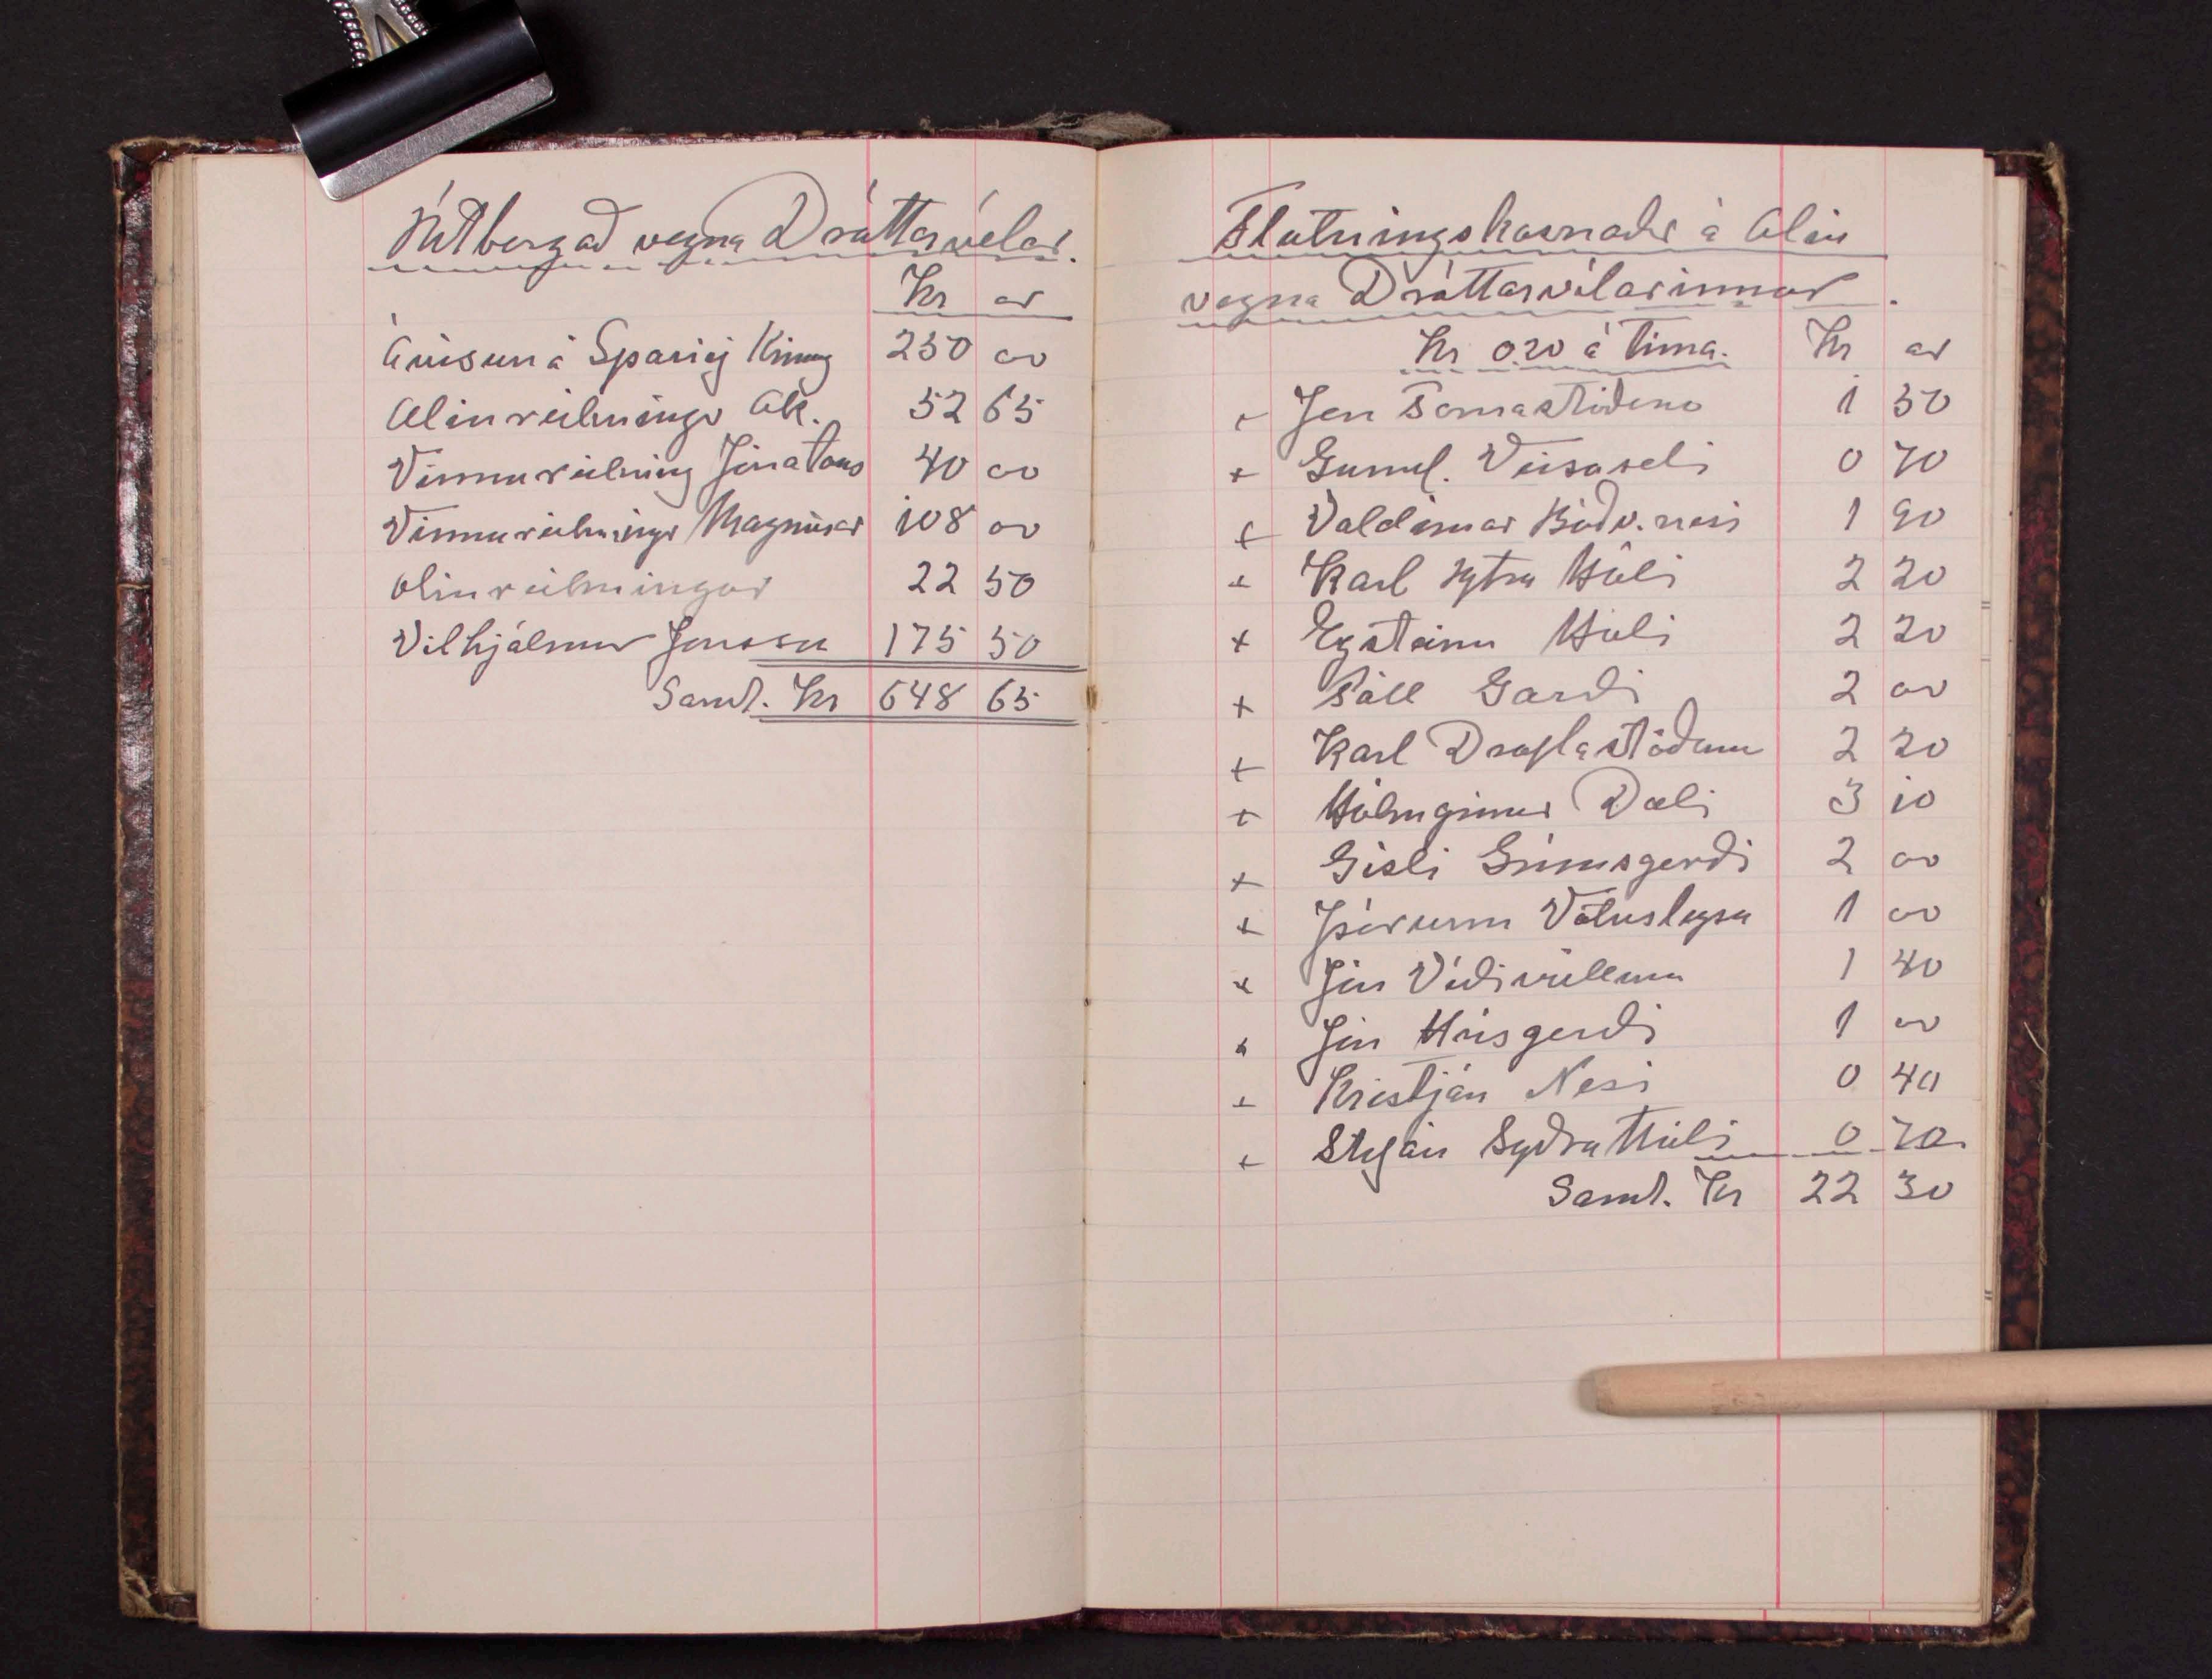 Útborgað vegna Dráttarvélar.
Kr ar
Ávísun á Sparisj Kinng 250 00
Olíureikningr Ak. 52 65
Vinnureikning Jónatans 40 00
Vinnureikningr Magnúsar 108 00
Olíureikningar 22 50
Vilhjálmur Jonsson 175 50
Samt. Kr 648 65
Flutningskosnaðr á Olíu
vegna Dráttarvélarinnar.
Kr 0.20 á tíma. Kr ar
+ Jón 1 50
+ Gunnl. Veisuseli 0 70
+ Valdimar Böðv.nesi 1 90
+ Karl Ytra Hóli 2 20
+ Eysteinn Hóli 2 20
+ Páll Garði 2 00
+ Karl Draflastöðum 2 20
+ Hólmgrímur Dæli 3 10
+ Gísli Grímsgerði 2 00
+ Þórunn Vatnsleysu 1 00
+ Jón Víðivöllum 1 40
+ Jón Hrísgerði 1 00
+ Kristján Nesi 0 40
+ Stefán Syðra Hóli 0 70.
Samt. Kr 22 30